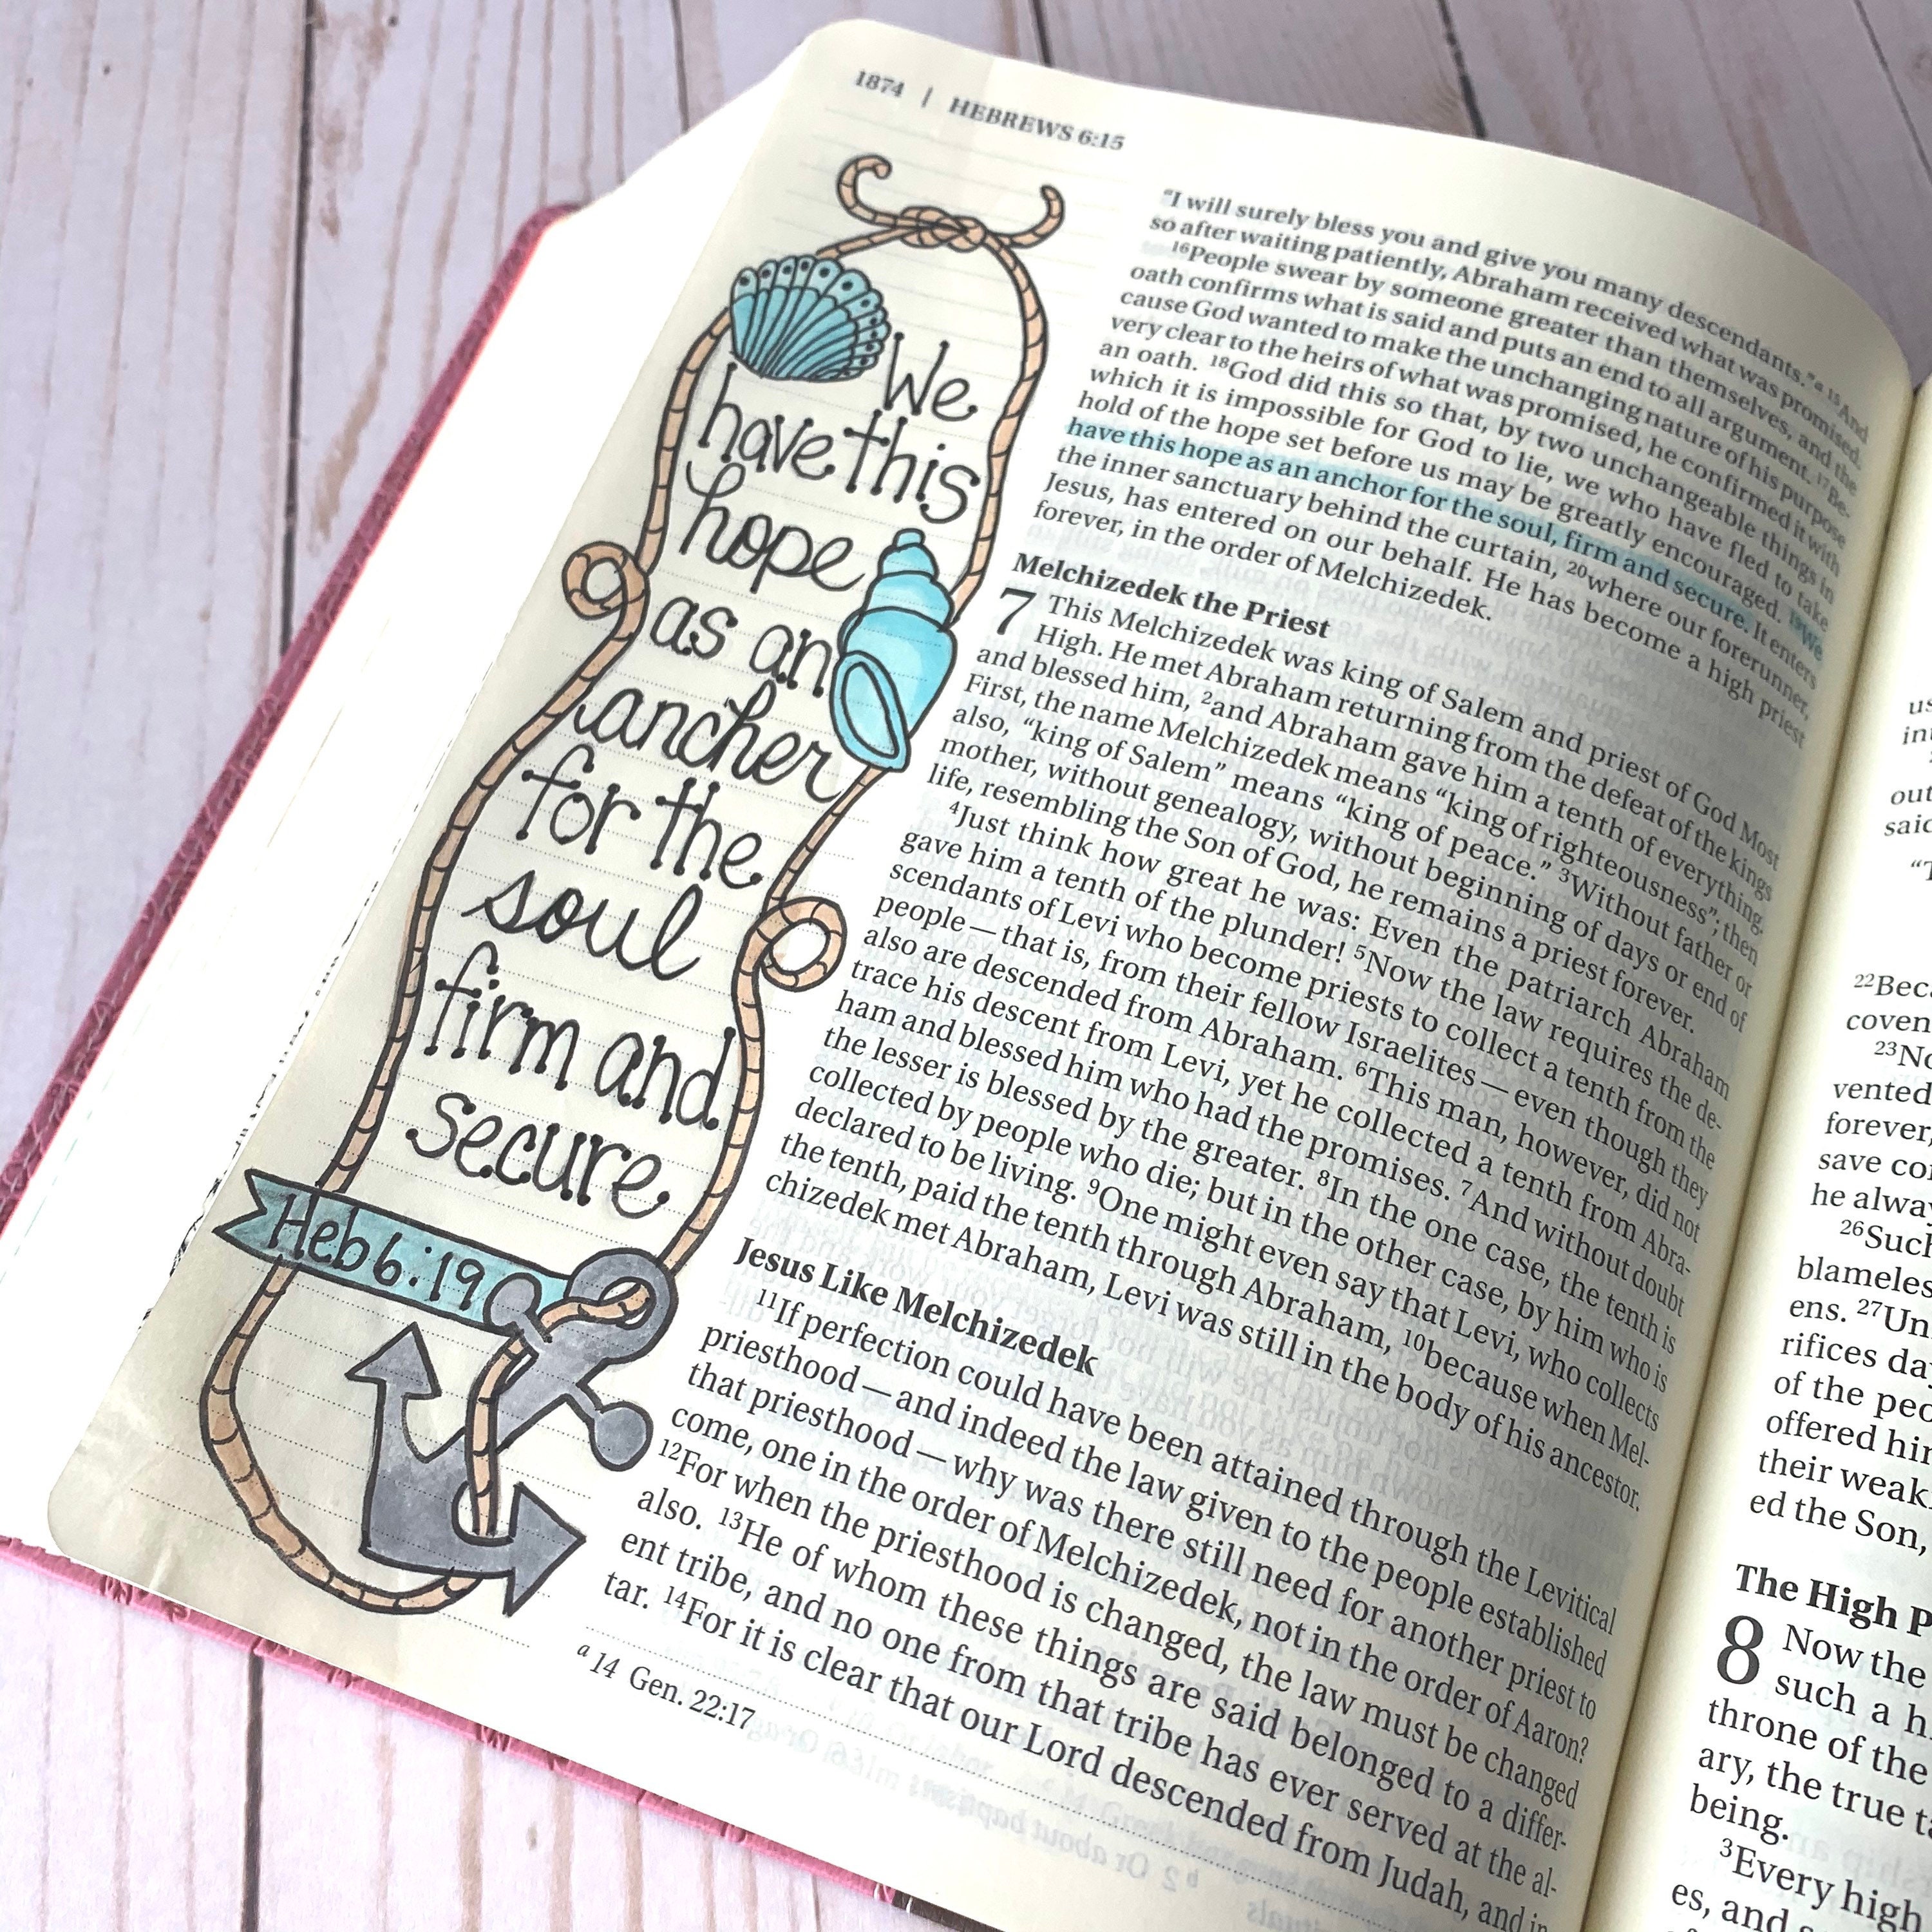 1874 | HEBREWS 6:15
We
have this
hope
as an
ancher
for the
soul
firm and
secure
Heb 6:19
"I will surely bless you and give you many descendants."a 15And
so after waiting patiently, Abraham received what was promised.
16People swear by someone greater than themselves, and the
oath confirms what is said and puts an end to all argument. 17Be-
cause God wanted to make the unchanging nature of his purpose
very clear to the heirs of what was promised, he confirmed it with
an oath. 18God did this so that, by two unchangeable things in
which it is impossible for God to lie, we who have fled to take
hold of the hope set before us may be greatly encouraged. 19We
have this hope as an anchor for the soul, firm and secure. It enters
the inner sanctuary behind the curtain, 20where our forerunner,
Jesus, has entered on our behalf. He has become a high priest
forever, in the order of Melchizedek.
Melchizedek the Priest
7 This Melchizedek was king of Salem and priest of God Most
High. He met Abraham returning from the defeat of the kings
and blessed him, 2and Abraham gave him a tenth of everything.
First, the name Melchizedek means "king of righteousness"; then
also, "king of Salem" means "king of peace." 3Without father or
mother, without genealogy, without beginning of days or end of
life, resembling the Son of God, he remains a priest forever.
4Just think how great he was: Even the patriarch Abraham
gave him a tenth of the plunder! 5Now the law requires the de-
scendants of Levi who become priests to collect a tenth from the
people — that is, from their fellow Israelites — even though they
also are descended from Abraham. 6This man, however, did not
trace his descent from Levi, yet he collected a tenth from Abra-
ham and blessed him who had the promises. 7And without doubt
the lesser is blessed by the greater. 8In the one case, the tenth is
collected by people who die; but in the other case, by him who is
declared to be living. 9One might even say that Levi, who collects
the tenth, paid the tenth through Abraham, 10because when Mel-
chizedek met Abraham, Levi was still in the body of his ancestor.
Jesus Like Melchizedek
11If perfection could have been attained through the Levitical
priesthood — and indeed the law given to the people established
that priesthood — why was there still need for another priest to
come, one in the order of Melchizedek, not in the order of Aaron?
12For when the priesthood is changed, the law must be changed
also. 13He of whom these things are said belonged to a differ-
ent tribe, and no one from that tribe has ever served at the al-
tar. 14For it is clear that our Lord descended from Judah, and in
a 14 Gen. 22:17
out
said
22Beca
coven
23No
vented
forever,
save co
he alwa
26Such
blameles
ens. 27Un
rifices da
of the peo
offered hi
their weak
ed the Son,
The High P
8 Now the
such a h
throne of the
ary, the true ta
being.
3Every high
es, and s